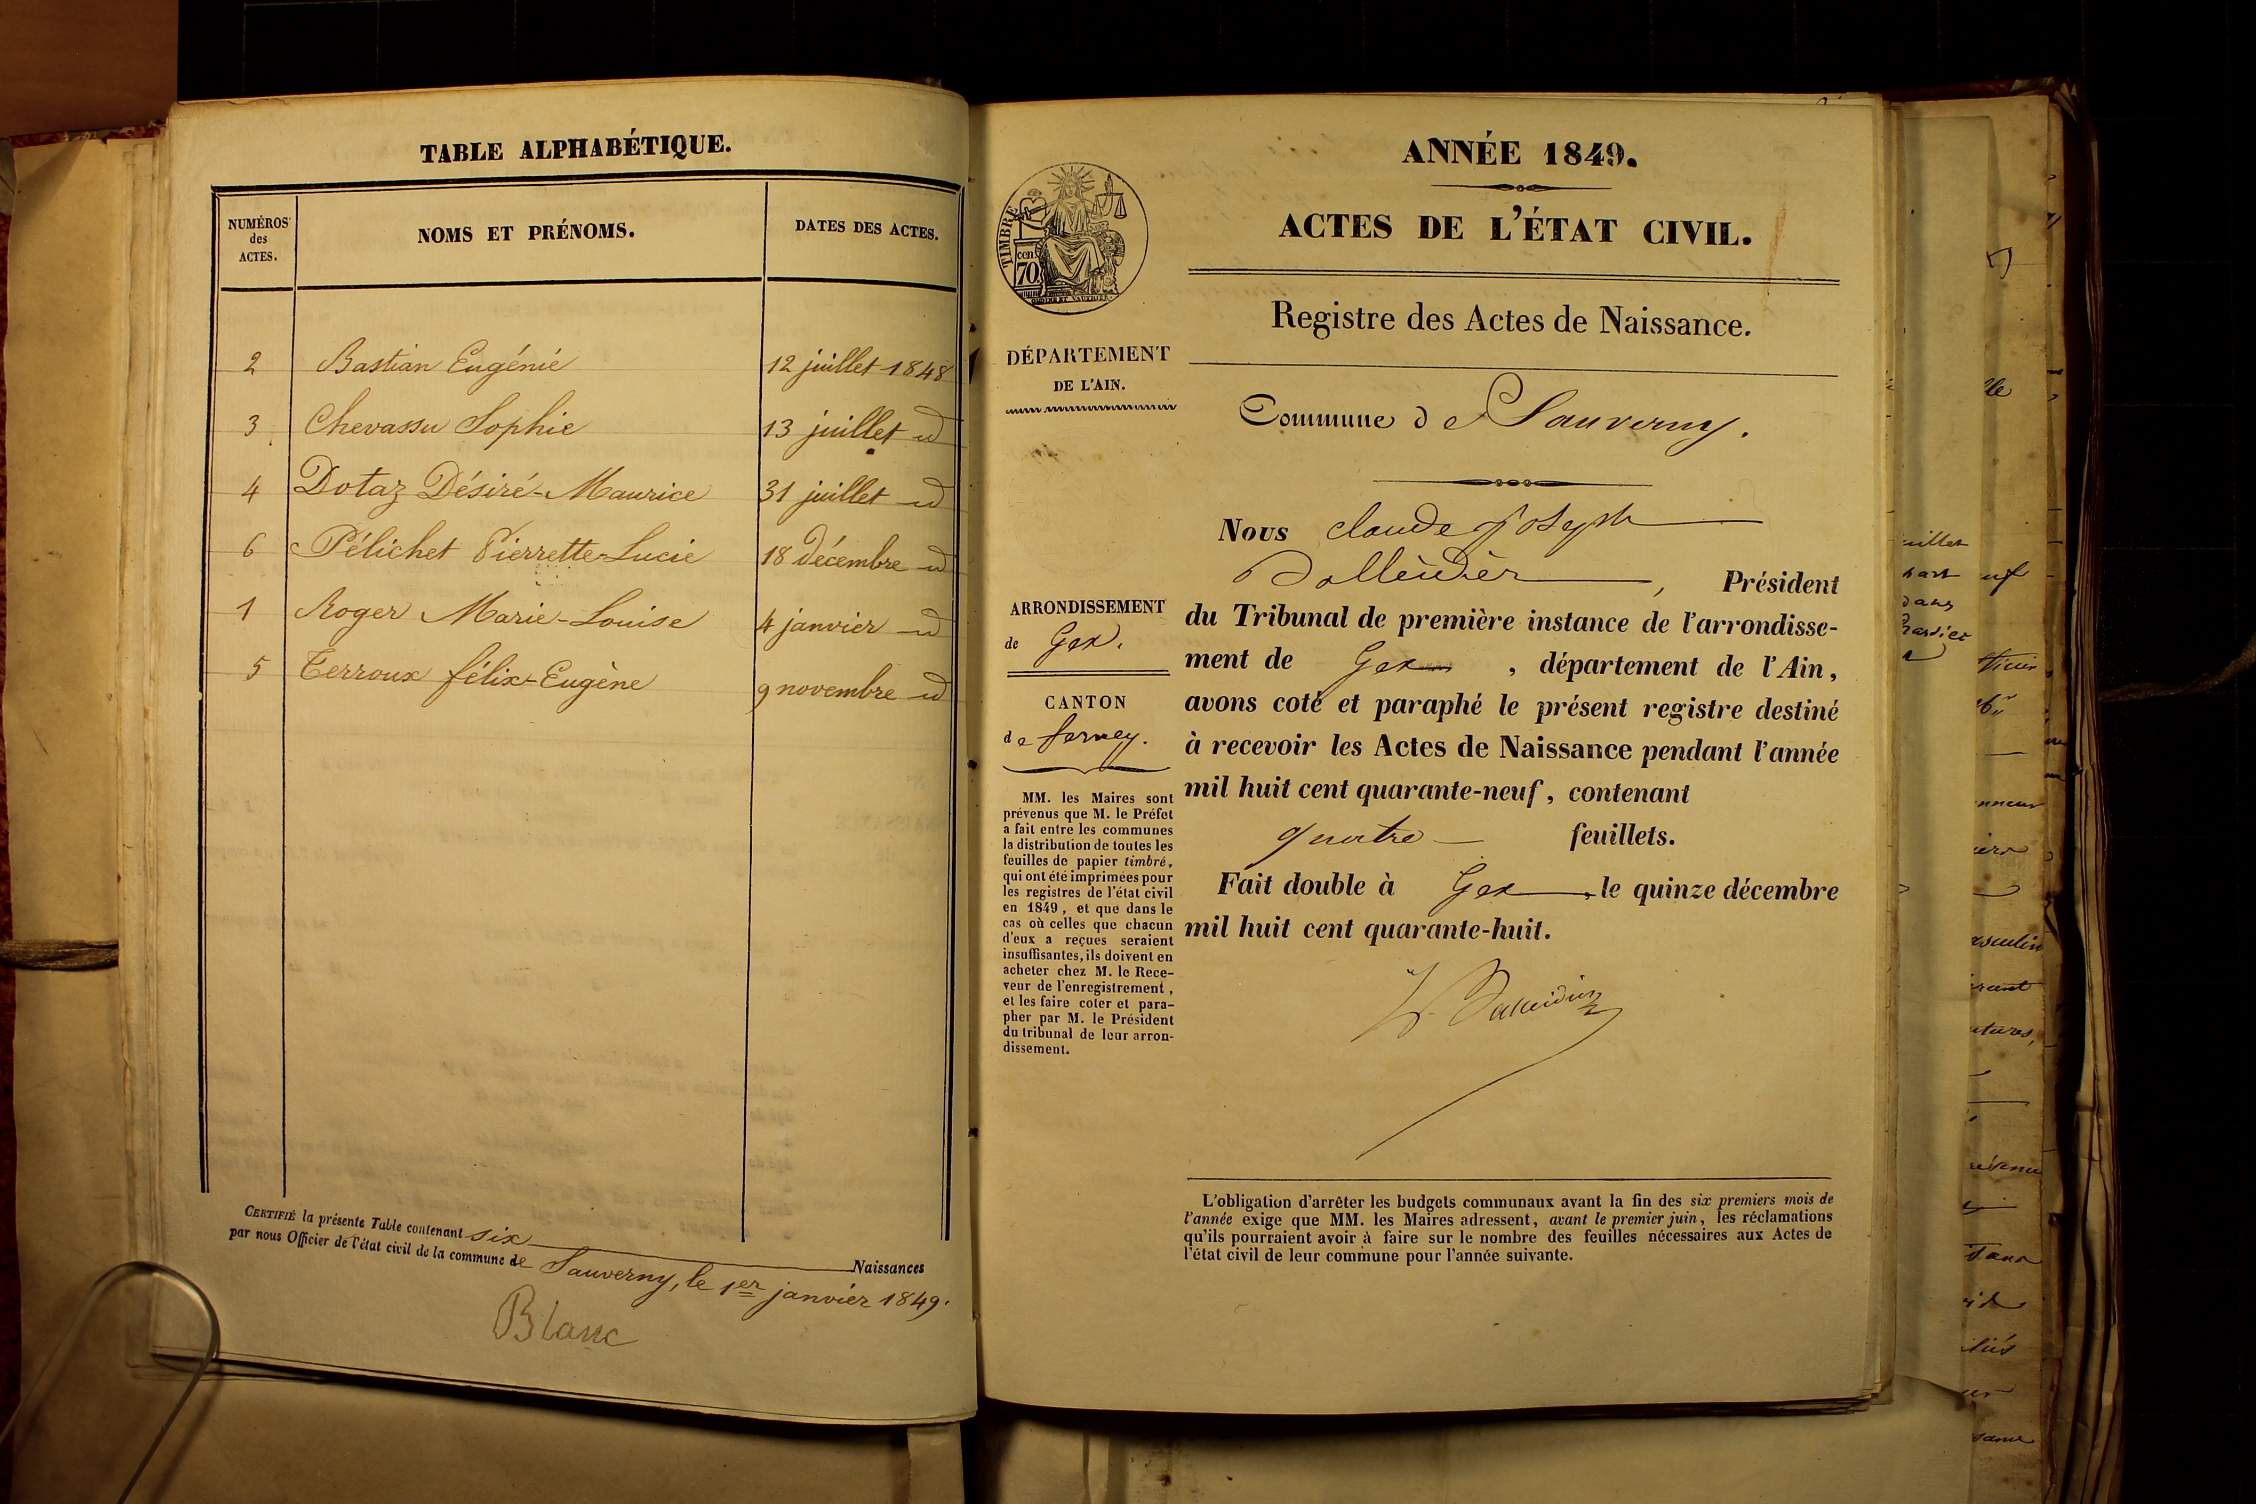 TABLE ALPHABÉTIQUE.
NUMÉROS
des
ACTES.
NOMS ET PRÉNOMS.
DATES DES ACTES.
2 Bastian Eugénie 12 juillet 1848
3 Chevassu Sophie 13 juillet id
4 Dotaz Désiré-Maurice 31 juillet id
6 Pélichet Pierrette-Lucie 18 décembre id
1 Roger Marie-Louise 4 janvier id
5 Terroux félix-Eugène 9 novembre id
CERTIFIÉ la présente Table contenant six Naissances
par nous Officier de l'état civil de la commune de Sauverny, le 1er janvier 1849.
Blanc
TIMBRE
cen.
70
DÉPARTEMENT
DE L'AIN.
ARRONDISSEMENT
de Gex.
CANTON
de ferney.
MM. les Maires sont
prévenus que M. le Préfet
a fait entre les communes
la distribution de toutes les
feuilles de papier timbré,
qui ont été imprimées pour
les registres de l'état civil
en 1849, et que dans le
cas où celles que chacun
d'eux a reçues seraient
insuffisantes, ils doivent en
acheter chez M. le Rece-
veur de l'enregistrement,
et les faire coter et para-
pher par M. le Président
du tribunal de leur arron-
dissement.
ANNÉE 1849.
ACTES DE L'ÉTAT CIVIL.
Registre des Actes de Naissance.
Commune de Sauverny.
Nous Claude Joseph
, Président
du Tribunal de première instance de l'arrondisse-
ment de Gex, département de l'Ain,
avons coté et paraphé le présent registre destiné
à recevoir les Actes de Naissance pendant l'année
mil huit cent quarante-neuf, contenant
quatre feuillets.
Fait double à Gex, le quinze décembre
mil huit cent quarante-huit.
L'obligation d'arrêter les budgets communaux avant la fin des six premiers mois de
l'année exige que MM. les Maires adressent, avant le premier juin, les réclamations
qu'ils pourraient avoir à faire sur le nombre des feuilles nécessaires aux Actes de
l'état civil de leur commune pour l'année suivante.